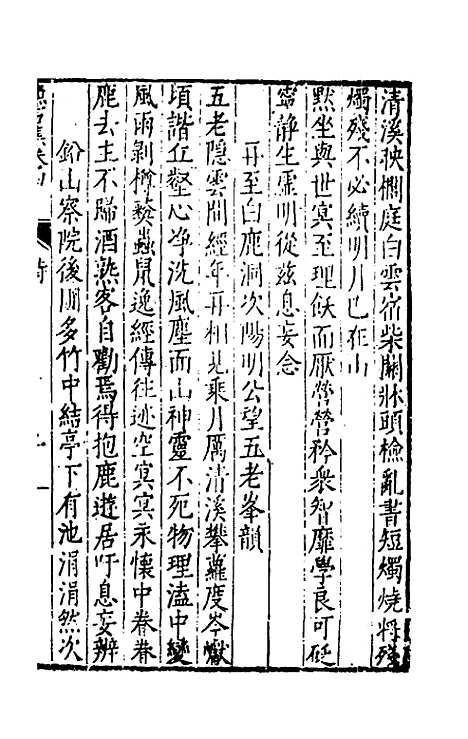 清溪映榈庭白雲宿柴關牀頭檢亂書短燭燒將殘
燭殘不必續明月已在山
默坐與世冥至理俛而厭營營矜衆智靡學良可砭
寧静生虚明從兹息妄念
再至白鹿洞次陽明公望五老峯韻
五老隱雲間經年再相見乘月厲清溪攀蘿度岑巘
頃諧丘壑心净洗風塵面山神靈不死物理溘中變
風雨剥樽彝蟲鼠逸經傳往迹空冥冥永懷中眷眷
鹿去主不歸酒熟客自勸焉得抱鹿遊居吁息妄辨
鉛山察院後圃多竹中結亭下有池涓涓然次
集卷四
詩